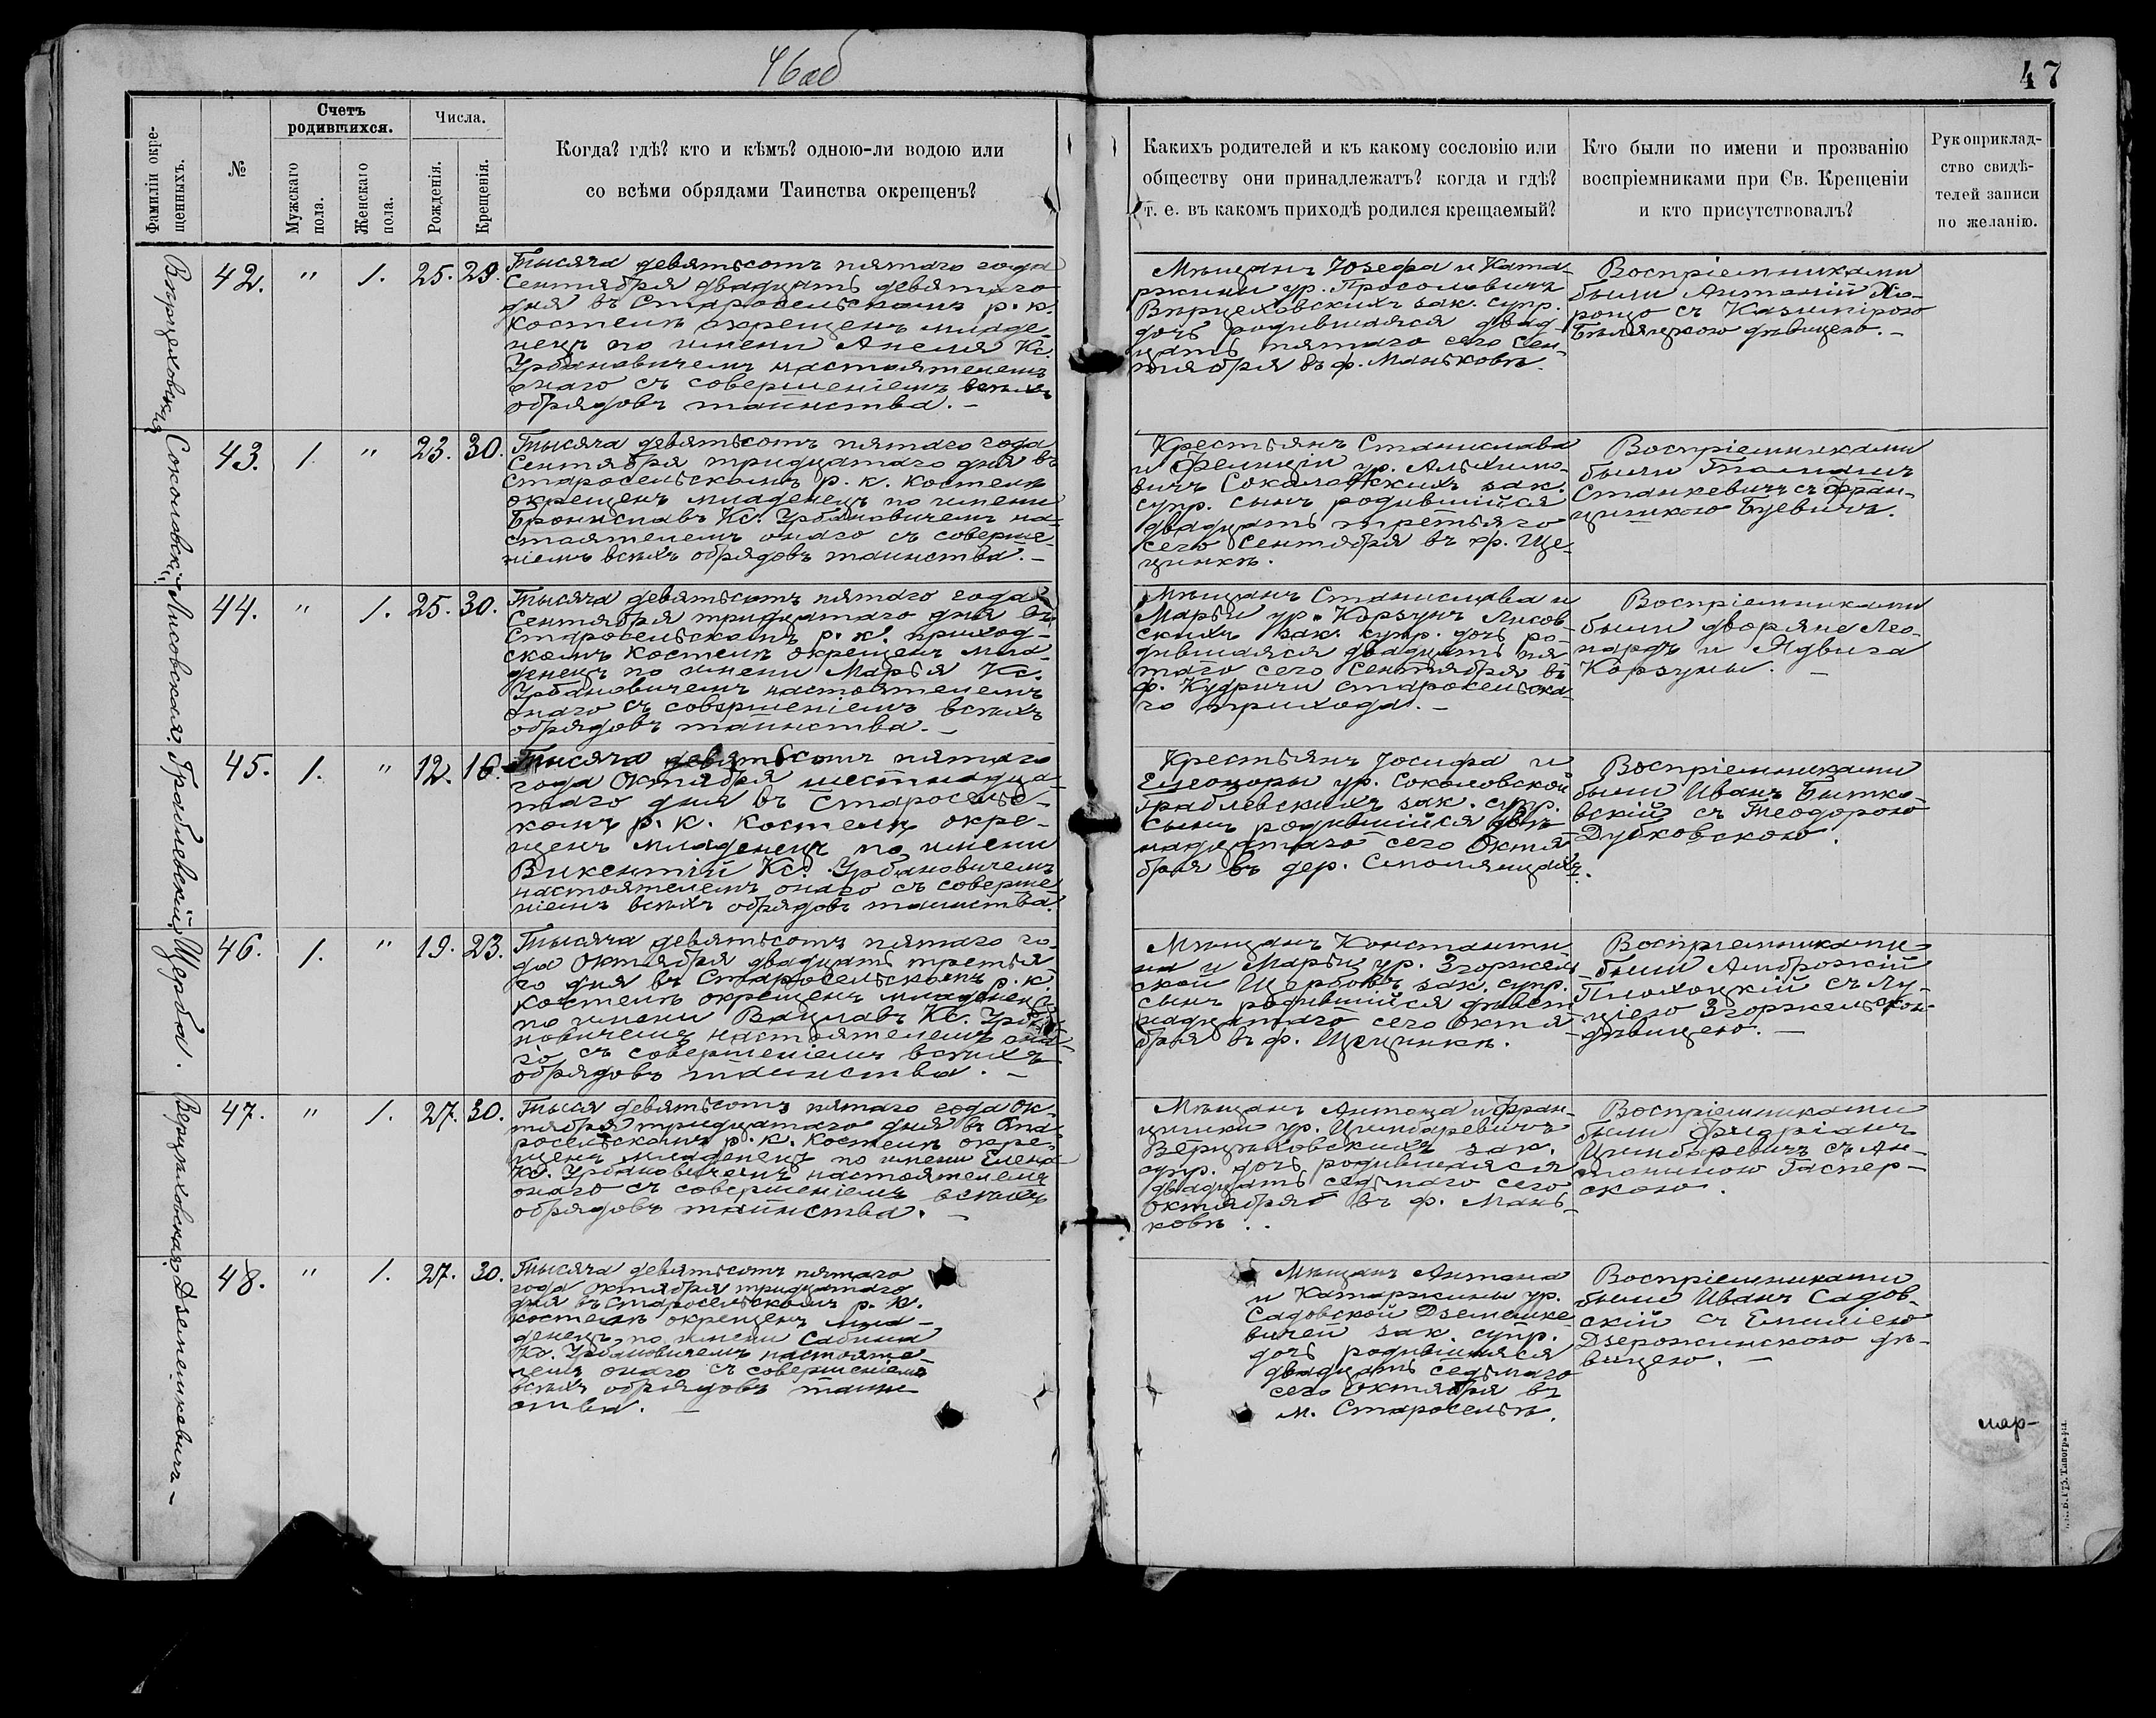 46об
47
Фамиліи окре-
щенныхъ.
№
Счетъ
родившихся.
Мужскаго
пола.
Женскаго
пола.
Числа.
Рожденія.
Крещенія.
Когда? гдѣ? кто и кѣмъ? одною-ли водою или
со всѣми обрядами Таинства окрещенъ?
Какихъ родителей и къ какому сословію или
обществу они принадлежатъ? когда и гдѣ?
т. е. въ какомъ приходѣ родился крещаемый?
Кто были по имени и прозванію
воспріемниками при Св. Крещеніи
и кто присутствовалъ?
Рукоприклад-
ство свидѣ-
телей записи
по желанію.
42. " 1. 25. 29.
Тысяча девятьсотъ пятаго года
Сентября двадцать девятаго
дня въ Старосельскомъ р. к.
костелѣ окрещенъ младе-
нецъ по имени Анеля Кс.
Урбановичемъ настоятелемъ
онаго съ совершеніемъ всѣхъ
обрядовъ таинства. –
Мѣщанъ Юзефа и Ката-
ржины ур. Просоловичъ
Вѣрцеховскихъ зак. супр.
дочь родившаяся двад-
цать пятаго сего Сен-
тября въ ф. Маньковѣ.
Воспріемниками
были Антоній
съ Казимірою
дѣвицею. –
Соколовскій
43. 1. " 23. 30.
Тысяча девятьсотъ пятаго года
Сентября тридцатаго дня въ
Старосельскомъ р. к. костелѣ
окрещенъ младенецъ по имени
Брониславъ Кс. Урбановичемъ на-
стоятелемъ онаго съ соверше-
ніемъ всѣхъ обрядовъ таинства. –
Крестьянъ Станислава
и Фелиціи ур. Альхимо-
вичъ Соколовскихъ зак.
супр. сынъ родившійся
двадцать третьяго
сего Сентября въ ф. Ще-
цинкѣ.
Воспріемниками
были Томашъ
Станкевичъ съ Фран-
цишкою Буевичъ.
Лисовская.
44. " 1. 25. 30.
Тысяча девятьсотъ пятаго года
Сентября тридцатаго дня въ
Старосельскомъ р. к. приход-
скомъ костелѣ окрещенъ мла-
денецъ по имени Марья Кс.
Урбановичемъ настоятелемъ
онаго съ совершеніемъ всѣхъ
обрядовъ таинства. –
Мѣщанъ Станислава и
Марьи ур. Корзунъ Лисов
скихъ зак. супр. дочь ро-
дившаяся двадцать пя
таго сего Сентября въ
ф. Кудричи старосельска-
го прихода. –
Воспріемниками
были дворяне Лео-
нардъ и Ядвига
Корзуны. –
Граблевскій.
45. 1. " 12. 16.
Тысяча девятьсотъ пятаго
года Октября шестнадца-
таго дня въ Старосельс-
комъ р. к. костелѣ окре-
щенъ младенецъ по имени
Викентій Кс. Урбановичемъ
настоятелемъ онаго съ соверше-
ніемъ всѣхъ обрядовъ таинства.
Крестьянъ Іосифа и
Елеоноры ур. Соколовской
Граблевскихъ зак. супр.
сынъ родившійся двѣ-
надцатаго сего Октя
бря въ дер. Смолянцахъ.
Воспріемниками
были Иванъ Бытко-
вскій съ Теодорою
Дубковскою.
Щерба.
46. 1. " 19. 23.
Тысяча девятьсотъ пятаго го-
да Октября двадцать третья
го дня въ Старосельскомъ р. к.
костелѣ окрещенъ младенец
по имени Вацлавъ Кс. Урба-
новичемъ настоятелемъ она-
го съ совершеніемъ всѣхъ
обрядовъ таинства. –
Мѣщанъ Константи
на и Марьи ур. Згоржель
ской Щербовъ зак. супр.
сынъ родившійся девят
надцатаго сего Октя
бря въ ф. Щецинкѣ.
Воспріемниками
были Амброжій
Плохоцкій съ Лу-
ціею Згоржельскою
дѣвицею. –
Верциховская.
47. " 1. 27. 30.
Тысяч девятьсотъ пятаго года Ок-
тября тридцатаго дня въ Ста-
росельскомъ р. к. костелѣ окре-
щенъ младенецъ по имени Елена
Кс. Урбановичемъ настоятелемъ
онаго съ совершеніемъ всѣхъ
обрядовъ таинства. –
Мѣщанъ Антона и Фран-
цишки ур. Цимбаревичъ
Верциховскихъ зак.
супр. дочь родившаяся
двадцать седьмаго сего
Октября въ ф. Мань-
ковѣ..
Воспріемниками
были Флоріанъ
Цимбаревичъ съ Ан-
тониною Гаспер-
скою.
Дземешкевичъ –
48. " 1. 27. 30.
Тысяча девятьсотъ пятаго
года Октября тридцатаго
дня въ Старосельскомъ р. к.
костелѣ окрещенъ мла-
денецъ по имени Сабина
Кс. Урбановичемъ настояте-
лемъ онаго съ совершеніемъ
всѣхъ обрядовъ таин-
ства. –
Мѣщанъ Антона
и Катаржины ур.
Садовской Дземешке
вичей зак. супр.
дочь родившаяся
двадцать седьмаго
сего Октября въ
м. Старосельѣ.
Воспріемниками
были Иванъ Садов-
скій съ Емиліею
Дзержинскою дѣ-
вицею. –
мар-